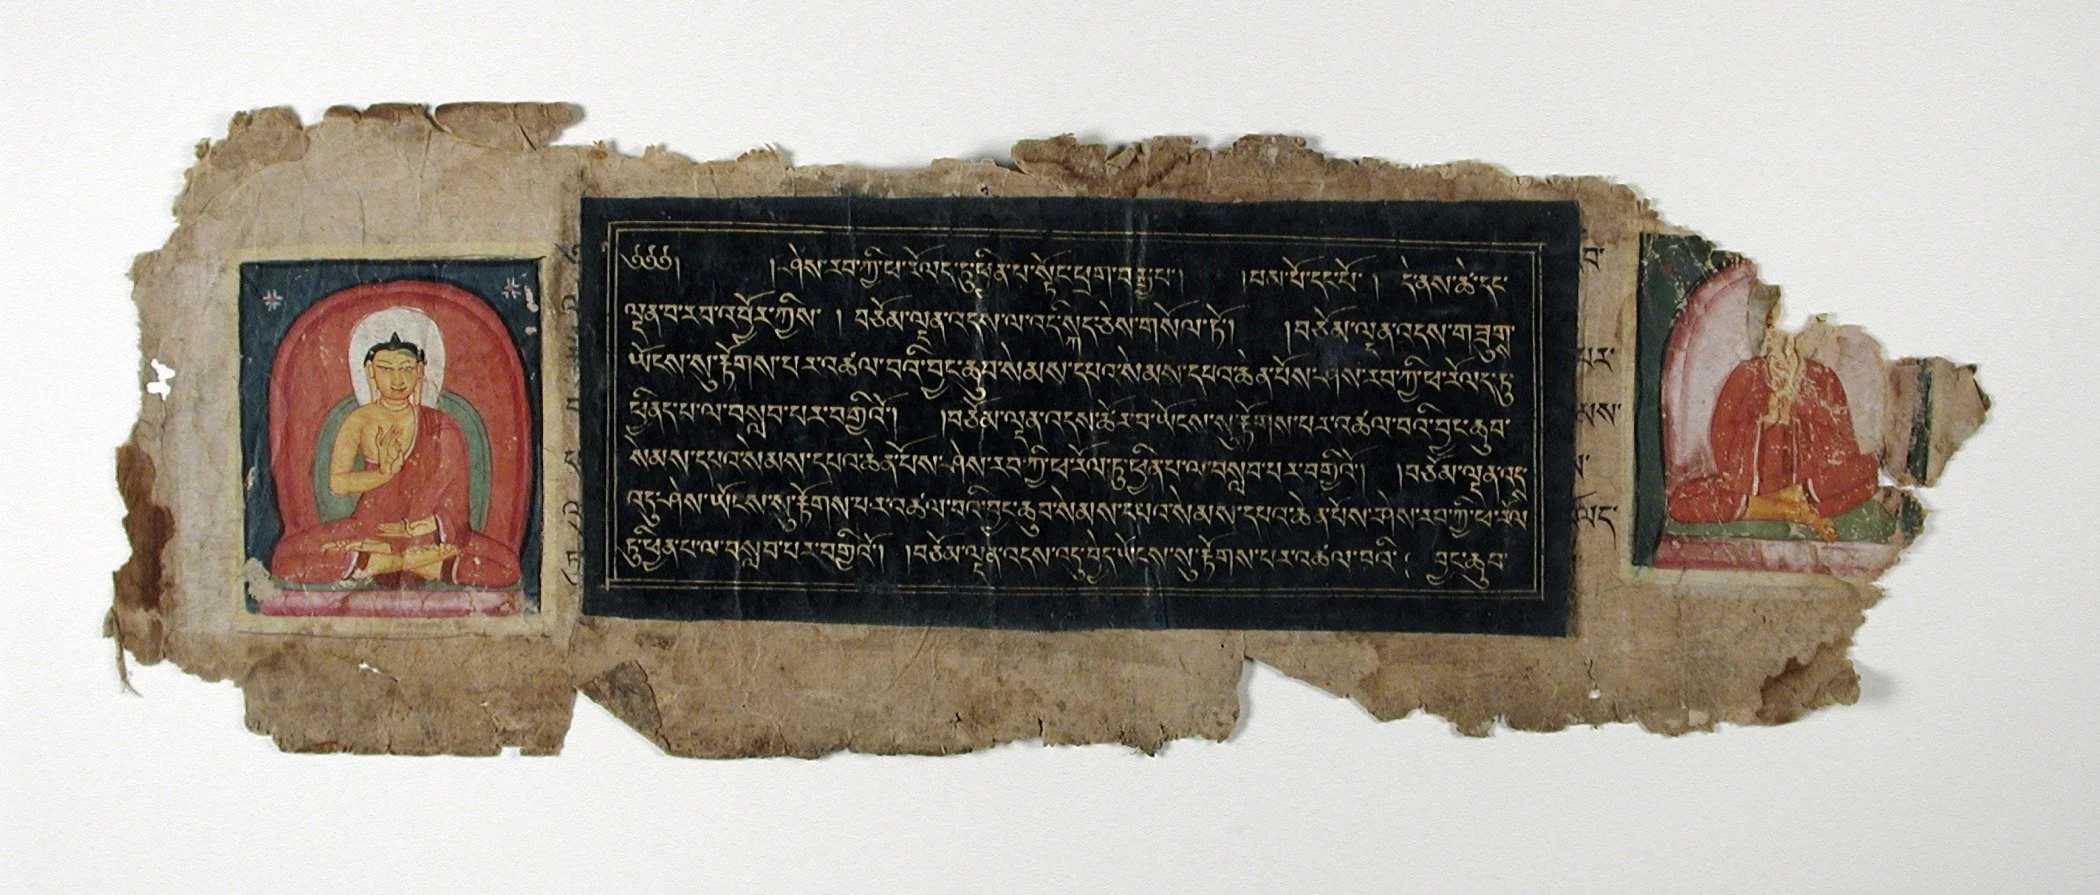 ༄༅༅། །ཤེས་རབ་ཀྱི་ཕ་རོལ་དུ་ཕྱིན་པ་སྟོང་ཕྲག་བརྒྱ་པ། །བམ་པོ་དང་པོ། དེ་ནས་ཚེ་དང་
ལྡན་བ་རབ་འབྱོར་ཀྱིས་ །བཅོམ་ལྡན་འདས་ལ་འདི་སྐད་ཅེས་གསོལ་ཏོ། །བཅོམ་ལྡན་འདས་གཟུགས་
ཡོངས་སུ་རྟོགས་པར་འཚལ་བའི་བྱང་ཆུབ་སེམས་དཔའ་སེམས་དཔའ་ཆེན་པོས་ཤེས་རབ་ཀྱི་ཕ་རོལ་དུ་
ཕྱིནད་པ་ལ་བསླབ་པར་བགྱིའོ། །བཅོམ་ལྡན་འདས་ཚོར་བ་ཡོངས་སུ་རྟོགས་པར་འཚལ་བའི་བྱང་ཆུབ་
སེམས་དཔའ་སེམས་དཔའ་ཆེན་པོས་ཤེས་རབ་ཀྱི་ཕ་རོལ་ཏུ་ཕྱིན་པ་ལ་བསླབ་པར་བགྱིའོ། །བཅོམ་ལྡན་འདས་
འདུ་ཤེས་ཡོངས་སུ་རྟོགས་པར་འཚལ་བའི་བྱང་ཆུབ་སེམས་དཔའ་སེམས་དཔའ་ཆེན་པོས་ཤེས་རབ་ཀྱི་ཕ་རོལ་
ཏུ་ཕྱིན་པ་ལ་བསླབ་པར་བགྱིའོ། །བཅོམ་ལྡན་འདས་འདུ་བྱེད་ཡོངས་སུ་རྟོགས་པར་འཚལ་བའི་ བྱང་ཆུབ་